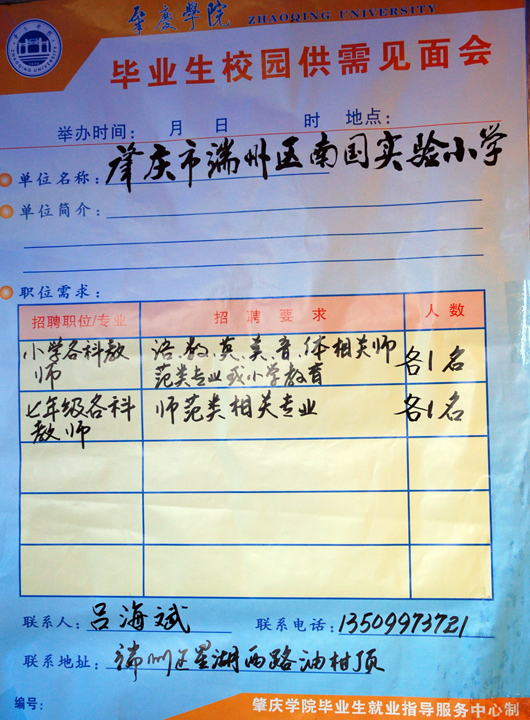 肇慶學院 ZHAOQING UNIVERSITY
毕业生校园供需见面会
举办时间： 月 日 时 地点：
单位名称：肇庆市端州区南国实验小学
单位简介：
职位需求：
招聘职位/专业 招聘要求 人数
小学各科教师 语、数、英、美、音、体相关师范类专业或小学教育 各1名
七年级各科教师 师范类相关专业 各1名
联系人：吕海斌 联系电话：13509973721
联系地址：端州区星湖西路油柑顶
编号： 肇庆学院毕业生就业指导服务中心制